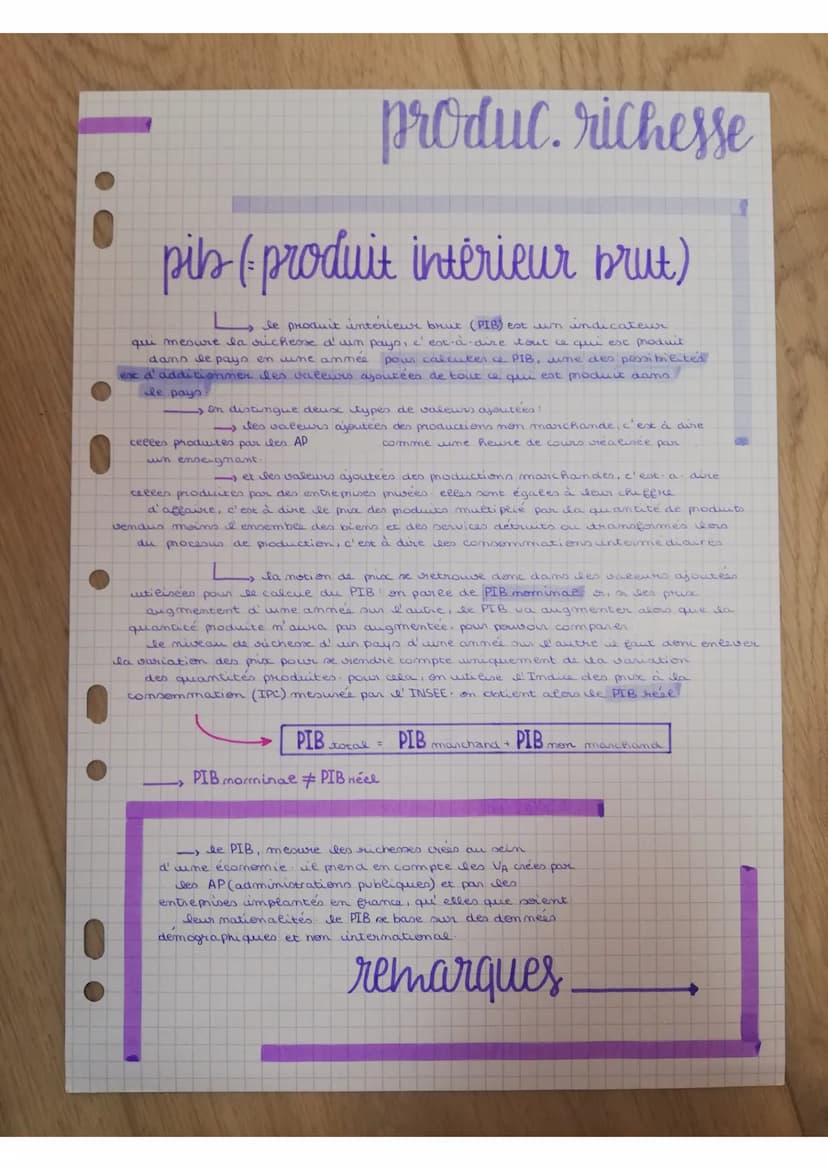 produc. richesse
pib (= produit intérieur brut)
le produit intérieur brut (PIB) est un indicateur
qui mesure la richesse d'un pays, c'est-à-dire tout ce qui est produit
dans le pays en une année pour calculer ce PIB, une des possibilités
est d'additionner les valeurs ajoutées de tout ce qui est produit dans
le pays.
→ on distingue deux types de valeurs ajoutées :
→ les valeurs ajoutées des productions non marchande, c'est à dire
celles produites par les AP comme une heure de cours réalisée par
un enseignant.
→ et les valeurs ajoutées des productions marchandes, c'est-a-dire
celles produites par des entreprises privées. elles sont égales à leur chiffre
d'affaire, c'est à dire le prix des produits multiplié par la quantité de produits
vendus moins l'ensemble des biens et des services détruits ou transformés lors
du procesus de production, c'est à dire les consommations intermédiaires
la notion de prix se retrouve donc dans les valeurs ajoutées
utilisées pour le calcule du PIB : on parle de PIB nominal or, si les prix
augmentent d'une année sur l'autre, le PIB va augmenter alors que la
quantité produite n'aura pas augmentée. pour pouvoir comparer
le niveau de richesse d'un pays d'une année sur l'autre il faut donc enlever
la variation des prix pour se rendre compte uniquement de la variation
des quantités produites. pour cela, on utilise l'Indice des prix à la
consommation (IPC) mesurée par l'INSEE. on obtient alors le PIB réel
PIB total = PIB marchand + PIB non marchand
→ PIB nominal ≠ PIB réel
→ le PIB, mesure les richesses créés au sein
d'une économie. il prend en compte les VA créées par
les AP (administrations publiques) et par les
entreprises implantés en france, qu'elles que soient
leur nationalités. le PIB se base sur des données
démographiques et non international.
remarques →